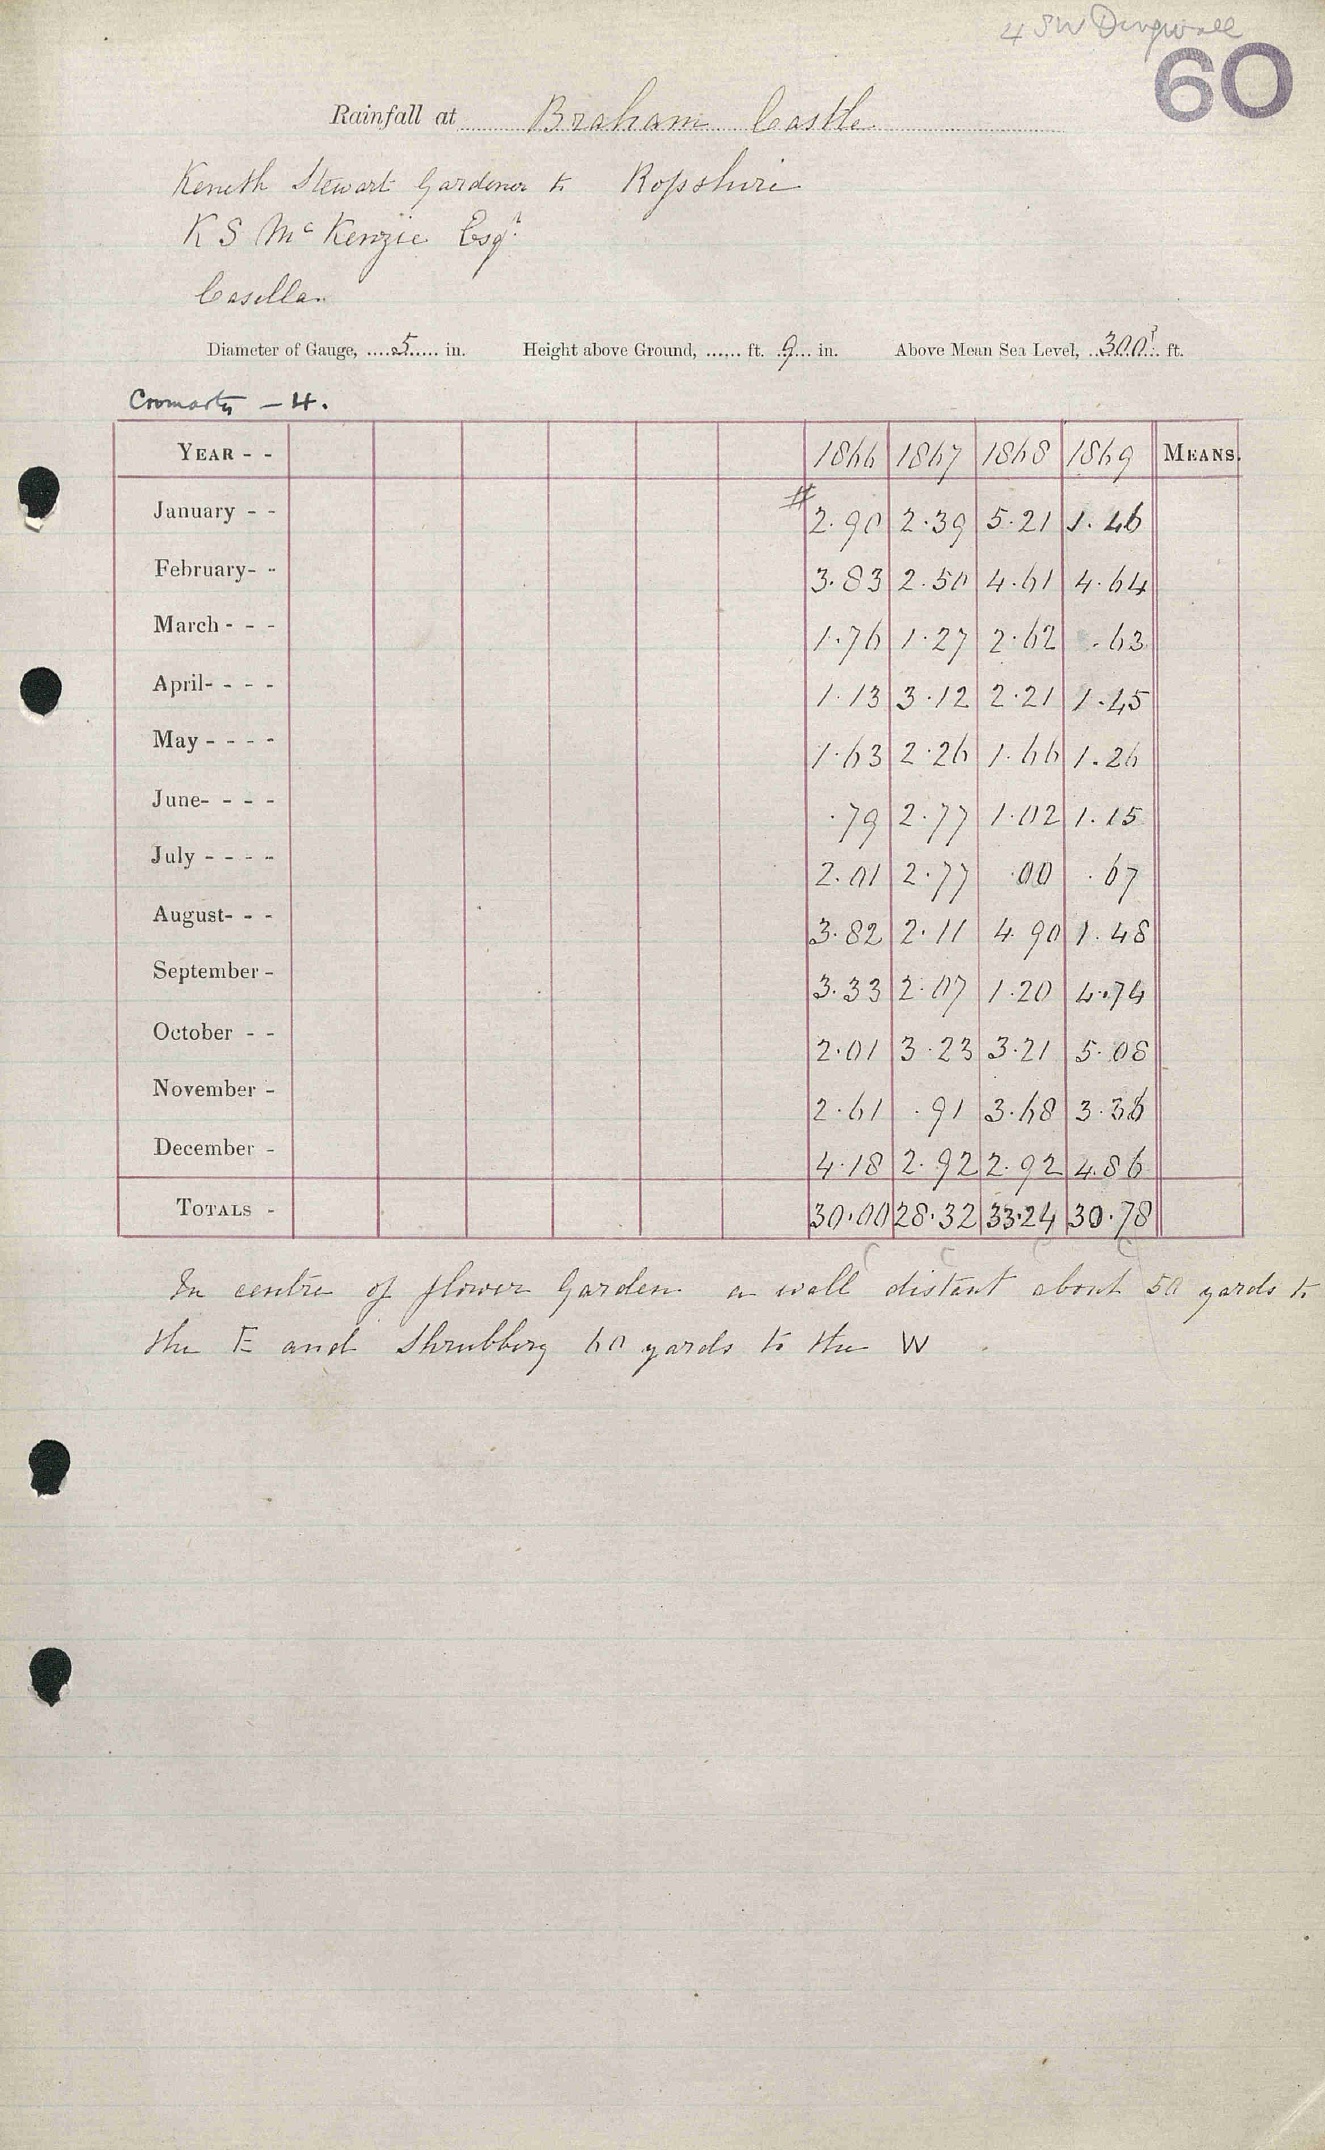 4 SW Dingwall
60
Rainfall at Braham Castle
Keneth Stewart Gardener to Rossshire
K S McKenzie Esqr
Casella
Diameter of Gauge, 5 in. Height above Ground, ft. 9 in. Above Mean Sea Level, 300? ft.
Cromarty - 4.
YEAR - - 1866 1867 1868 1869 MEANS.
January - - # 2.90 2.39 5.21 1.46
February - - 3.83 2.50 4.61 4.64
March - - - 1.76 1.27 2.62 .63
April - - - - 1.13 3.12 2.21 1.45
May - - - - 1.63 2.26 1.66 1.26
June - - - - .79 2.77 1.02 1.15
July - - - - 2.01 2.77 .00 .67
August - - - 3.82 2.11 4.90 1.48
September - 3.33 2.07 1.20 4.74
October - - 2.01 3.23 3.21 5.08
November - 2.61 .91 3.68 3.36
December - 4.18 2.92 2.92 4.86
TOTALS - 30.00 28.32 33.24 30.78
In centre of flower Garden a wall distant about 50 yards to
the E and Shrubbery 60 yards to the W